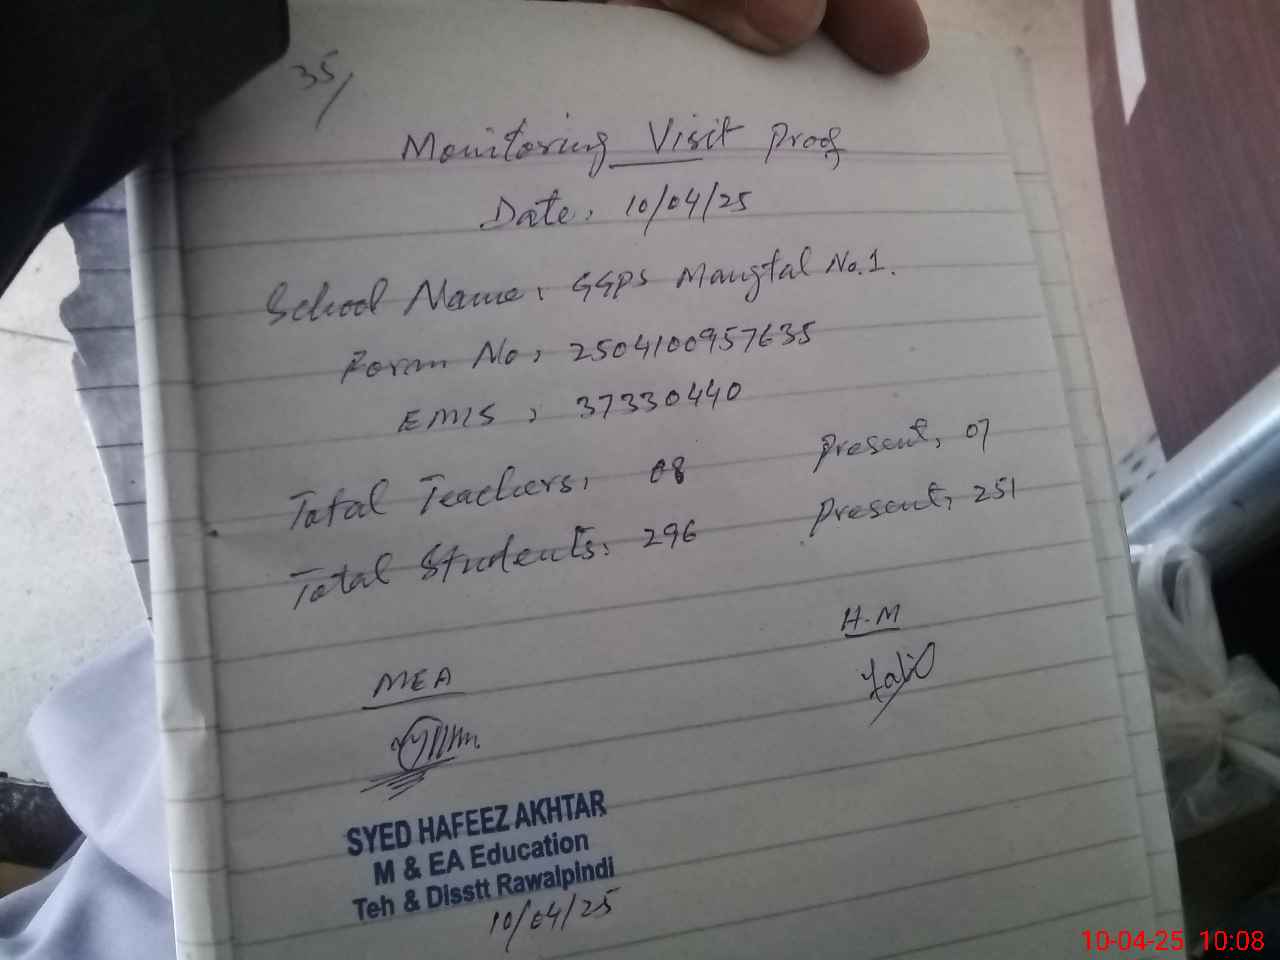 35/
Monitoring Visit Proof
Date: 10/04/25
School Name: GGPS Mangtal No.1.
Form No: 2504100957635
EMIS: 37330440
Total Teachers: 08 Present: 07
Total Students: 296 Present: 251
H.M
MEA
SYED HAFEEZ AKHTAR
M & EA Education
Teh & Disstt Rawalpindi
10/04/25
10-04-25 10:08